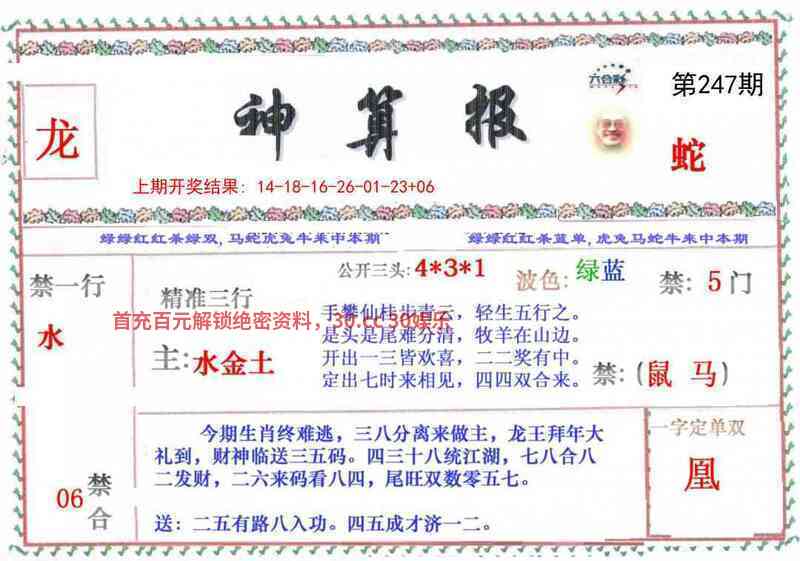 六合彩
第247期
龙
神算报
蛇
上期开奖结果: 14-18-16-26-01-23+06
绿绿红红杀绿双, 马蛇虎兔牛来中本期
绿绿红红杀蓝单, 虎兔马蛇牛来中本期
禁一行
水
精准三行
主:水金土
公开三头:4*3*1
波色:绿蓝
禁: 5门
手攀仙桂步青云，轻生五行之。
首充百元解锁绝密资料，30.cc 30娱乐
是头是尾难分清，牧羊在山边。
开出一三皆欢喜，二二奖有中。
定出七时来相见，四四双合来。
禁:(鼠 马)
06
禁合
今期生肖终难逃，三八分离来做主，龙王拜年大
礼到，财神临送三五码。四三十八统江湖，七八合八
二发财，二六来码看八四，尾旺双数零五七。
送：二五有路八入功。四五成才济一二。
一字定单双
凰